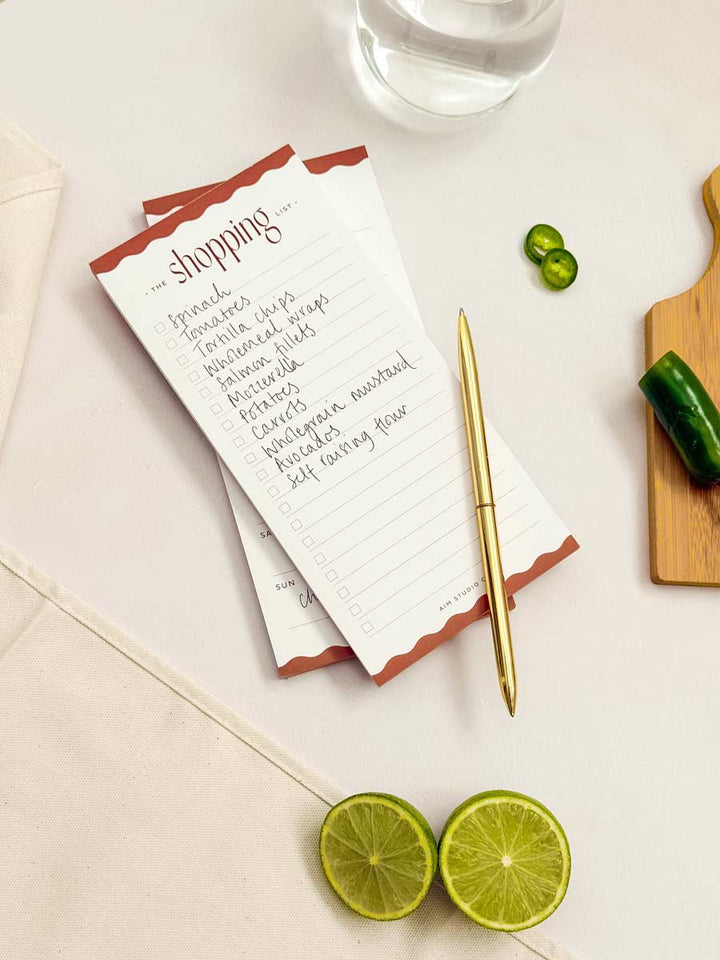 · THE shopping LIST ·
Spinach
Tomatoes
Tortilla chips
Wholemeal wraps
Salmon fillets
Mozzerella
Potatoes
Carrots
Wholegrain mustard
Avocados
Self raising flour
AIM STUDIO
SUN